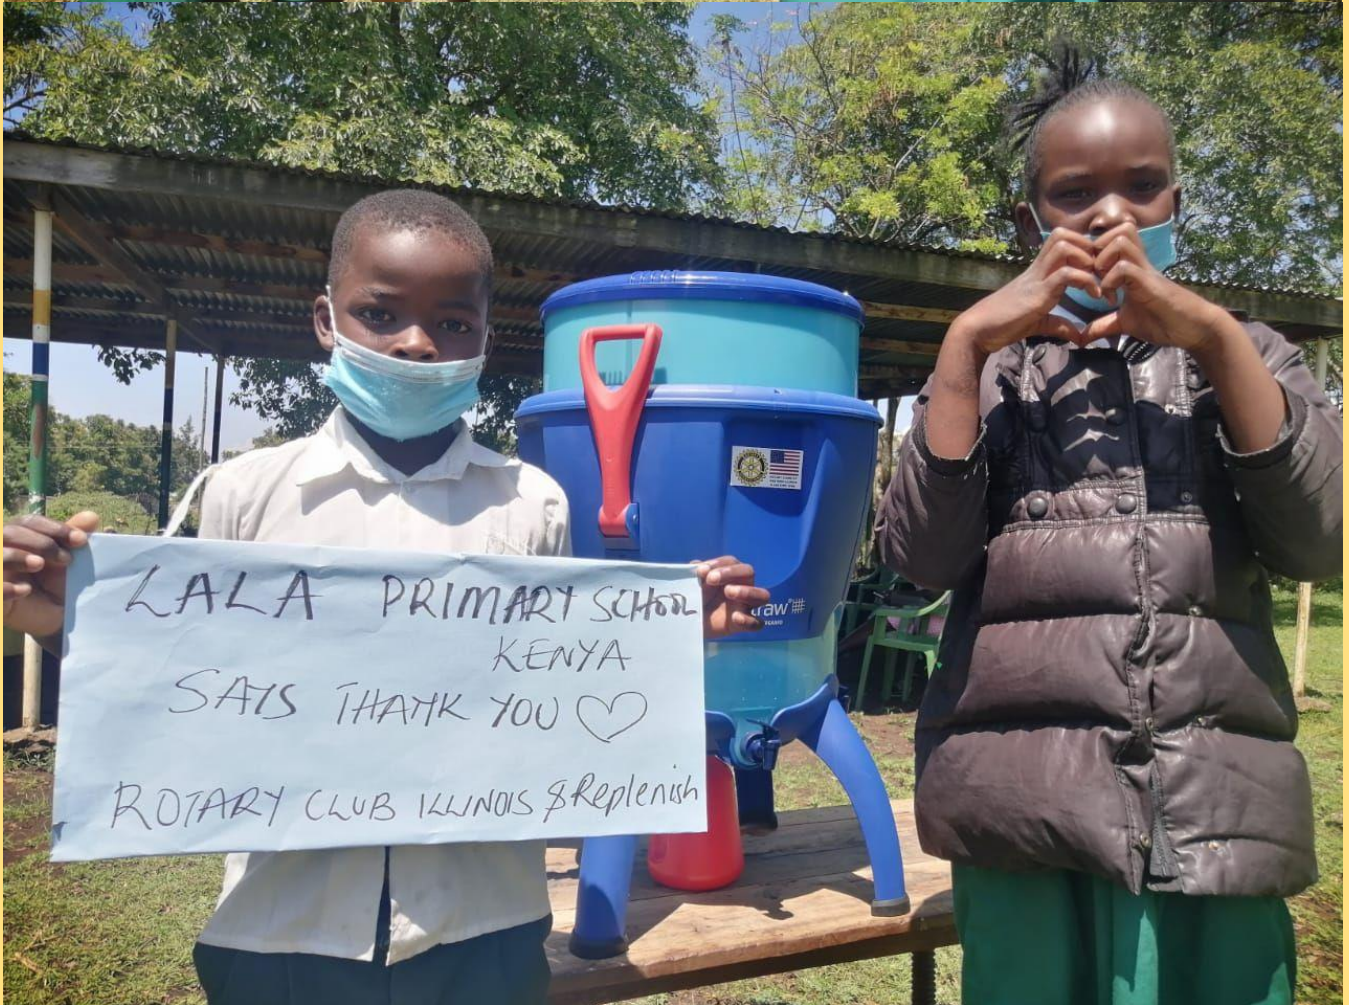 LALA PRIMARY SCHOOL
KENYA
SAYS THANK YOU
ROTARY CLUB ILLINOIS & Replenish
traw®